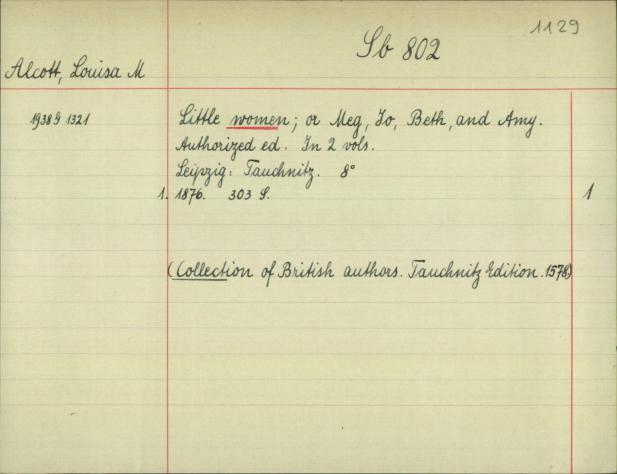 1129
Sb 802
Alcott, Louisa M
1938 G 1321
Little women; or Meg, Jo, Beth, and Amy.
Authorized ed. In 2 vols.
Leipzig: Tauchnitz. 8°
1. 1876. 303 S. 1
(Collection of British authors. Tauchnitz Edition. 1578)